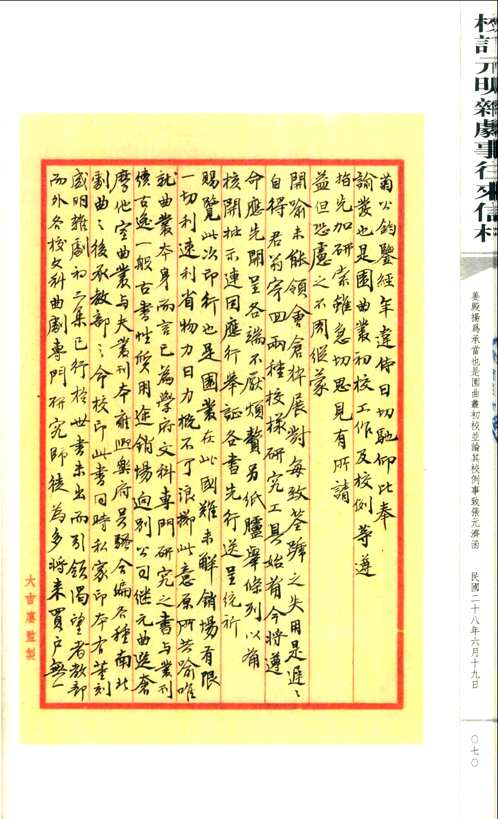 校訂元明雜劇事往來信札
姜殿揚爲承當也是園曲叢初校並論其校例事致張元濟函　民國二十八年六月十九日
〇七〇
菊公鈞鑒經年違侍日切馳仰比奉
諭叢也是園曲叢初校工作及校例等遵
指先加研索雖急切思見有所請
益但恐慮之不周假蒙
開喻未能領會倉猝展對每致荃蹄之失用是遲〻
自得君翁寄回兩種校樣研究工具始備今將遵
命應先開呈各端不厭煩贅另紙臚舉條列以備
核開批示連因應行舉証各書先行送呈統祈
賜覽此次印行也是園叢在此國難未解銷場有限
一切利速利省物力日力概不丁浪擲此意原所共喻唯
就曲叢本身而言已為學府文科專門研究之書與叢刊
續古逸一般古書性質用途銷場向別公司繼元曲選奢
摩他室曲叢與夫叢刊本雍熙樂府吳騷合編各種南北
劇曲之後承教部之命校印此書同時私家印本有董刻
盛明雜劇初二集已行於世書未出而引領渴望者教部
而外各校文科曲劇專門研究師徒為多將來買戶無一
大吉廔監製